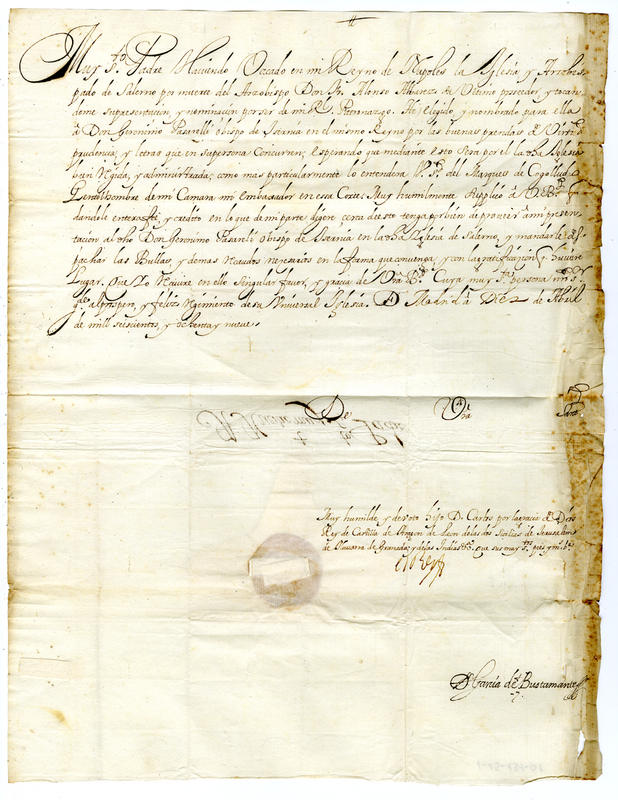 Muy S.to Padre Haviendo Vaccado en mi Reyno de Napoles la Yglesia y Arzobis-
pado de Salerno por muerte del Arzobispo Don fr. Alonso Albarez su Ultimo posehedor, y tocan-
dome supresentacion y nominacion por ser de mi R.l Patronazgo. He elegido y nombrado para ella
a Don Geronimo Pasareli obispo de Isernia en el mismo Reyno por las buenas prendas de Virtud
prudencia, y letras que en supersona Concurren; esperando que mediante esto sera por el la dha Yglesia
bien Regida, y administrada; como mas particularmente lo entendera V. S.d del Marques de Cogolludo
Gentilhombre de mi Camara mi embaxador en essa Corte: Muy humilmente supplico a V. B.d
dandole entera fee, y credito en lo que de mi parte digere cerca desto tenga por bien de proveer a mi presen-
tacion al dho Don Geronimo Pasareli obispo de Isernia en la dha Yglesia de Salerno, y mandarle des-
pachar las Bullas y demas Recados nezesarios en la forma que convenga, y con la gratificazion q. huviere
Lugar. Que Yo Recivire en ello singular favor, y gracia de Vra B.d Cuya muy S.ta persona
g.e al prospero, y feliz Regimiento de su Universal Yglesia. De Madrid a Diez de Abril
de mill seiscientos, y ochenta y nueve.
De Vra Sant.d
Muy humilde, y devoto hijo D. Carlos por la gracia de Dios
Rey de Castilla de Aragon de Leon de las dos Sicilias de Jerusalem
de Navarra de Granada, y de las Indias &.a que sus muy S.tos pies y m.s b.a
el Rey
D. Garcia de Bustamante